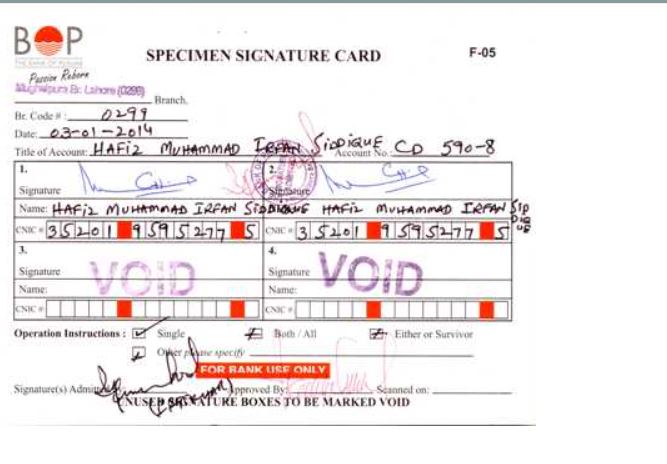 BOP
THE BANK OF PUNJAB
Passion Reborn
SPECIMEN SIGNATURE CARD
F-05
Mughalpura Br. Lahore (0299)
Branch.
Br. Code # : 0299
Date: 03-01-2014
Title of Account: HAFIZ MUHAMMAD IRFAN SIDDIQUE Account No. CD 590-8
1. 2.
Signature Signature
Name: HAFIZ MUHAMMAD IRFAN SIDDIQUE HAFIZ MUHAMMAD IRFAN SIDDIQUE
CNIC # 35201 9595277 5 CNIC # 35201 9595277 5
3. 4.
Signature VOID Signature VOID
Name: Name:
CNIC # CNIC #
Operation Instructions : Single Both / All Either or Survivor
Other please specify
FOR BANK USE ONLY
Signature(s) Admitted Approved By: Scanned on:
UNUSED SIGNATURE BOXES TO BE MARKED VOID